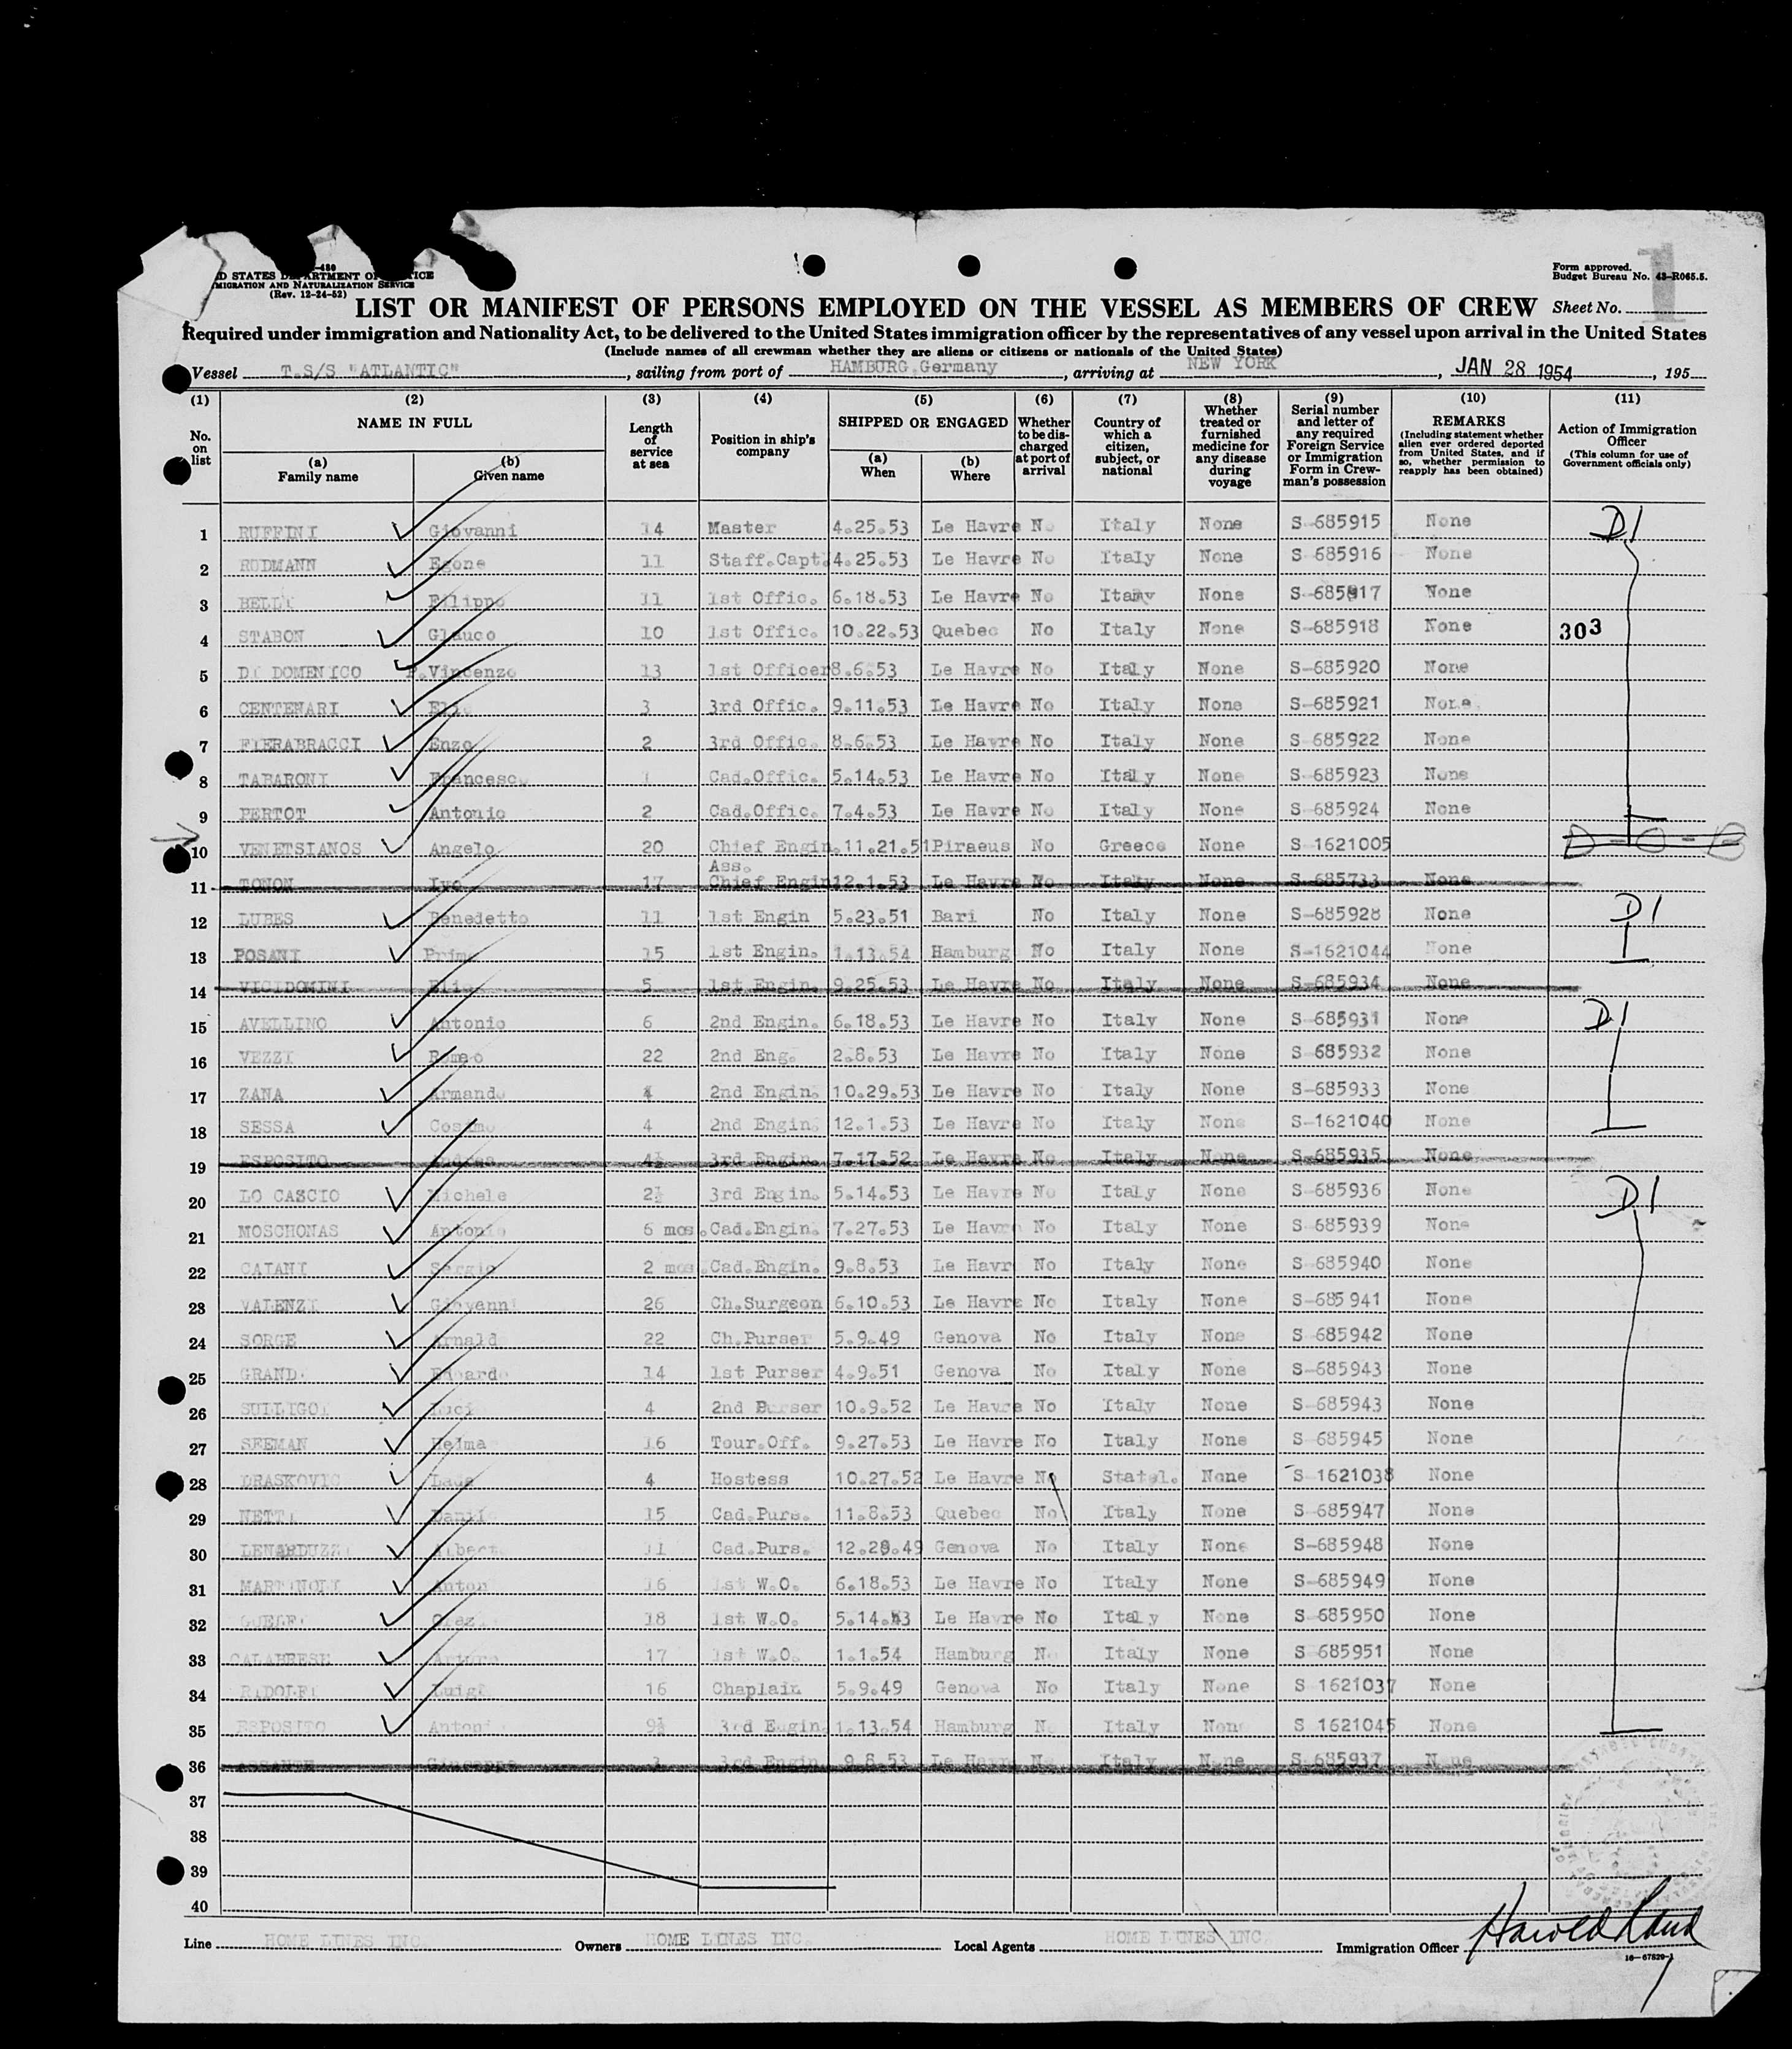 1
Form approved.
Budget Bureau No. 43-R065.5.
D STATES DEPARTMENT OF JUSTICE
MIGRATION AND NATURALIZATION SERVICE
(Rev. 12-24-52)
LIST OR MANIFEST OF PERSONS EMPLOYED ON THE VESSEL AS MEMBERS OF CREW Sheet No.
Required under immigration and Nationality Act, to be delivered to the United States immigration officer by the representatives of any vessel upon arrival in the United States
(Include names of all crewman whether they are aliens or citizens or nationals of the United States)
Vessel T.S/S "ATLANTIC", sailing from port of HAMBURG.Germany, arriving at NEW YORK, JAN 28 1954, 195
(1) (2) (3) (4) (5) (6) (7) (8) (9) (10) (11)
No. on list
NAME IN FULL
(a) Family name
(b) Given name
Length of service at sea
Position in ship's company
SHIPPED OR ENGAGED
(a) When
(b) Where
Whether to be discharged at port of arrival
Country of which a citizen, subject, or national
Whether treated or furnished medicine for any disease during voyage
Serial number and letter of any required Foreign Service or Immigration Form in Crewman's possession
REMARKS
(Including statement whether alien ever ordered deported from United States, and if so, whether permission to reapply has been obtained)
Action of Immigration Officer
(This column for use of Government officials only)
1 RUFFINI Giovanni 14 Master 4.25.53 Le Havre No Italy None S-685915 None D1
2 RUDMANN Egone 11 Staff.Capt. 4.25.53 Le Havre No Italy None S 685916 None
3 BELLI Filippo 11 1st Offic. 6.18.53 Le Havre No Italy None S-685917 None
4 STABON Glauco 10 1st Offic. 10.22.53 Quebec No Italy None S-685918 None 303
5 DI DOMENICO P.Vincenzo 13 1st Officer 8.6.53 Le Havre No Italy None S-685920 None
6 CENTENARI 3 3rd Offic. 9.11.53 Le Havre No Italy None S-685921 None
7 FIERABRACCI Enzo 2 3rd Offic. 8.6.53 Le Havre No Italy None S 685922 None
8 TABARONI Francesco 1 Cad.Offic. 5.14.53 Le Havre No Italy None S-685923 None
9 PERTOT Antonio 2 Cad.Offic. 7.4.53 Le Havre No Italy None S-685924 None
10 VENETSIANOS Angelo 20 Chief Engin. 11.21.51 Piraeus No Greece None S 1621005
11 TONON Ivo 17 Ass. Chief Engin 12.1.53 Le Havre No Italy None S-685733 None
12 LUBES Benedetto 11 1st Engin 5.23.51 Bari No Italy None S-685928 None D1
13 POSANI Primo 15 1st Engin. 1.13.54 Hamburg No Italy None S-1621044 None
14 VICIDOMINI 5 1st Engin. 9.25.53 Le Havre No Italy None S-685934 None
15 AVELLINO Antonio 6 2nd Engin. 6.18.53 Le Havre No Italy None S-685931 None D1
16 VEZZI Romeo 22 2nd Eng. 2.8.53 Le Havre No Italy None S 685932 None
17 ZANA Armando 4 2nd Engin. 10.29.53 Le Havre No Italy None S-685933 None
18 SESSA Cosimo 4 2nd Engin. 12.1.53 Le Havre No Italy None S-1621040 None
19 ESPOSITO Andrea 4½ 3rd Engin. 7.17.52 Le Havre No Italy None S-685935 None
20 LO CASCIO Michele 2½ 3rd Engin. 5.14.53 Le Havre No Italy None S-685936 None D1
21 MOSCHONAS Antonio 6 mos. Cad.Engin. 7.27.53 Le Havre No Italy None S-685939 None
22 CAIANI Sergio 2 mos. Cad.Engin. 9.8.53 Le Havr No Italy None S 685940 None
23 VALENZI Giovanni 26 Ch.Surgeon 6.10.53 Le Havre No Italy None S-685941 None
24 SORGE Arnald 22 Ch.Purser 5.9.49 Genova No Italy None S 685942 None
25 GRAND 14 1st Purser 4.9.51 Genova No Italy None S-685943 None
26 SULLIGOI 4 2nd Purser 10.9.52 Le Havre No Italy None S 685943 None
27 SEEMAN Helma 16 Tour.Off. 9.27.53 Le Havre No Italy None S 685945 None
28 DRASKOVIC 4 Hostess 10.27.52 Le Havre No Statel. None S-1621038 None
29 NETTI 15 Cad.Purs. 11.8.53 Quebec No Italy None S-685947 None
30 LENARDUZZI Albert 11 Cad.Purs. 12.29.49 Genova No Italy None S-685948 None
31 MARTINOLI Anton 16 1st W.O. 6.18.53 Le Havre No Italy None S-685949 None
32 GUELFI 18 1st W.O. 5.14.53 Le Havre No Italy None S 685950 None
33 CALABRESE Arturo 17 1st W.O. 1.1.54 Hamburg No Italy None S 685951 None
34 RIDOLFI Luigi 16 Chaplain 5.9.49 Genova No Italy None S 1621037 None
35 ESPOSITO Antoni 9½ 3rd Engin. 1.13.54 Hamburg No Italy None S 1621045 None
36 ASSANTE Giuseppe 3 3rd Engin 9.8.53 Le Havre No Italy None S 685937 None
37
38
39
40
Line HOME LINES INC. Owners HOME LINES INC. Local Agents HOME LINES INC. Immigration Officer Harold Rand
16-67829-1